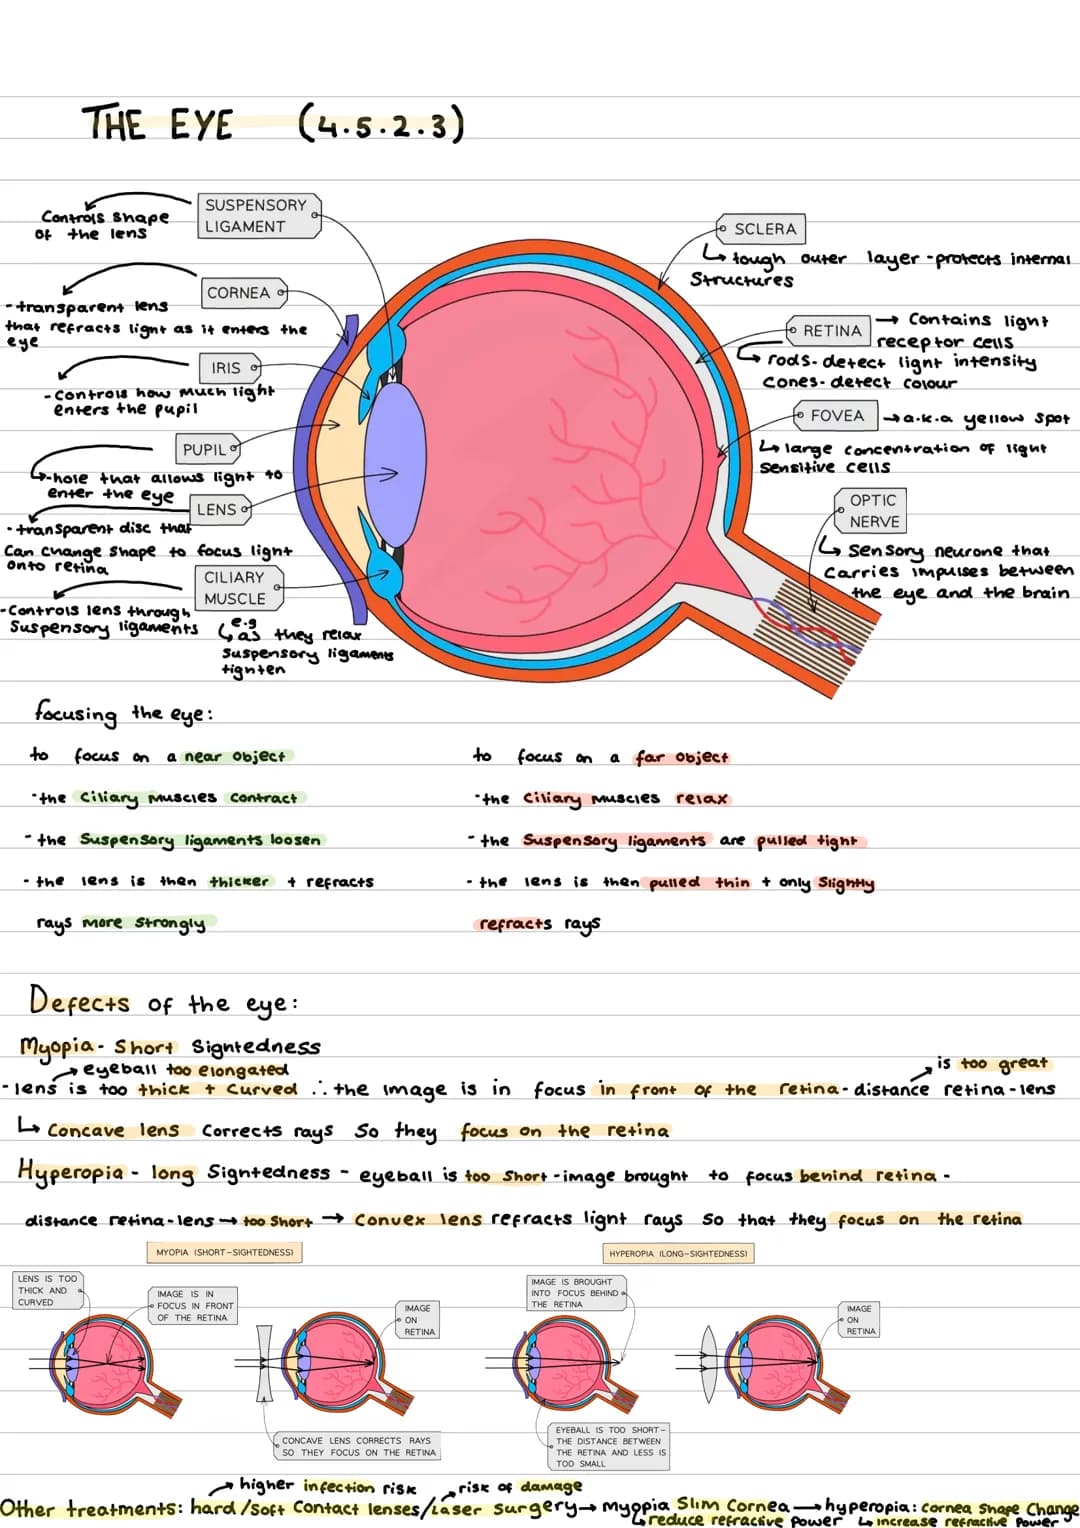 THE EYE (4.5.2.3)
SUSPENSORY
LIGAMENT
Controls shape
of the lens
CORNEA
-transparent lens
that refracts light as it enters the
eye
IRIS
-Controls how much light
enters the pupil
PUPIL
-hole that allows light to
enter the eye
LENS
-transparent disc that
Can change shape to focus light
onto retina
CILIARY
MUSCLE
-Controls lens through
Suspensory ligaments
e.g
as they relax
suspensory ligaments
tighten
SCLERA
tough outer layer -protects internal
Structures
RETINA → Contains light
receptor cells
rods- detect light intensity
Cones- detect colour
FOVEA → a.k.a yellow spot
large concentration of light
sensitive cells
OPTIC
NERVE
Sensory neurone that
Carries impulses between
the eye and the brain
focusing the eye:
to focus on a near object
-the Ciliary muscles contract
-the Suspensory ligaments loosen
-the lens is then thicker + refracts
rays more strongly
to focus on a far object
-the Ciliary muscles relax
-the Suspensory ligaments are pulled tight
-the lens is then pulled thin + only slightly
refracts rays
Defects of the eye:
Myopia- Short Sightedness
→ eyeball too elongated
is too great
-lens is too thick + curved ∴ the image is in focus in front of the retina- distance retina-lens
↳ Concave lens Corrects rays so they focus on the retina
Hyperopia - long Sightedness - eyeball is too short -image brought to focus behind retina -
distance retina-lens → too short → Convex lens refracts light rays so that they focus on the retina
MYOPIA (SHORT-SIGHTEDNESS)
LENS IS TOO
THICK AND
CURVED
IMAGE IS IN
FOCUS IN FRONT
OF THE RETINA
IMAGE
ON
RETINA
CONCAVE LENS CORRECTS RAYS
SO THEY FOCUS ON THE RETINA
HYPEROPIA (LONG-SIGHTEDNESS)
IMAGE IS BROUGHT
INTO FOCUS BEHIND
THE RETINA
IMAGE
ON
RETINA
EYEBALL IS TOO SHORT-
THE DISTANCE BETWEEN
THE RETINA AND LESS IS
TOO SMALL
→ higher infection risk → risk of damage
Other treatments: hard/soft Contact lenses/Laser surgery→ myopia Slim Cornea → hyperopia: cornea shape change
↳ reduce refractive power ↳ increase refractive power